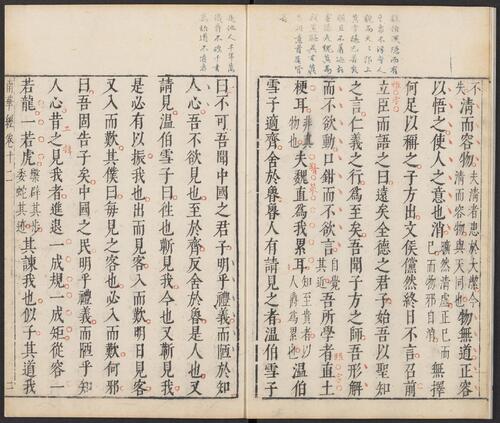 不失清而容物夫清者患於大潔今清而容物與天同也物無道正容
以悟之使人之意也消曠然清虛正己而已而物邪自消無擇
何足以稱之子方出文侯儻然終日不言召前
立臣而語之曰遠矣全德之君子始吾以聖知
之言仁義之行為至矣吾聞子方之師吾形解
而不欲動口鉗而不欲言自覺其近吾所學者直土
梗耳非真物也夫魏直為我累耳知至貴者以人爵為累也溫伯
雪子適齊舍於魯魯人有請見之者溫伯雪子
曰不可吾聞中國之君子明乎禮義而陋於知
人心吾不欲見也至於齊反舍於魯是人也又
請見溫伯雪子曰往也蘄見我今也又蘄見我
是必有以振我也出而見客入而歎明日見客
又入而歎其僕曰每見之客也必入而歎何邪
曰吾固告子矣中國之民明乎禮義而陋乎知
人心昔之見我者進退一成規一成矩從容一
若龍一若虎槃辟其步委蛇其迹其諫我也似子其道我
南華經卷十二
二